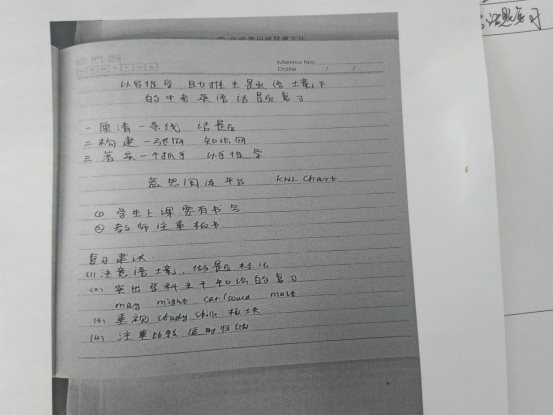 话题复习
Memo No.
Date / /
以写促学,助推主题语境下
的中考英语话题复习
一 厘清一条线 话题
二 构建一张网 知识网
三 落实一个抓手 以写促学
蓝思阅读平台 KWL Chart
① 学生上课要有书写
② 教师注重板书
复习建议
(1) 注意语境,话题标化
(2) 突出学科主干知识的复习
may might can/could must
(3) 重视study skill板块
(4) 注重比较 适时归纳